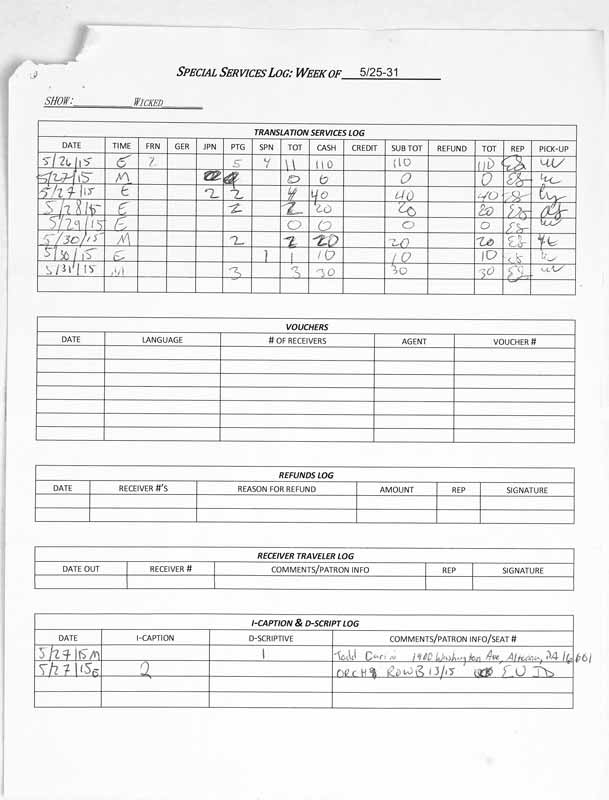 SPECIAL SERVICES LOG: WEEK OF 5/25-31
SHOW: WICKED
TRANSLATION SERVICES LOG
DATE TIME FRN GER JPN PTG SPN TOT CASH CREDIT SUB TOT REFUND TOT REP PICK-UP
5/26/15 E 2 5 4 11 110 110 110 EG
5/27/15 M 0 0 0 0 EG
5/27/15 E 2 2 4 40 40 40 EG
5/28/15 E 2 2 20 20 20 EG
5/29/15 E 0 0 0 0 EG
5/30/15 M 2 2 20 20 20 EG
5/30/15 E 1 1 10 10 10 EG
5/31/15 M 3 3 30 30 30 EG
VOUCHERS
DATE LANGUAGE # OF RECEIVERS AGENT VOUCHER #
REFUNDS LOG
DATE RECEIVER #'S REASON FOR REFUND AMOUNT REP SIGNATURE
RECEIVER TRAVELER LOG
DATE OUT RECEIVER # COMMENTS/PATRON INFO REP SIGNATURE
I-CAPTION & D-SCRIPT LOG
DATE I-CAPTION D-SCRIPTIVE COMMENTS/PATRON INFO/SEAT #
5/27/15 M 1 Todd 1900 Washington Ave, PA 16601
5/27/15 E 2 ORCH ROW B 13/15 ID